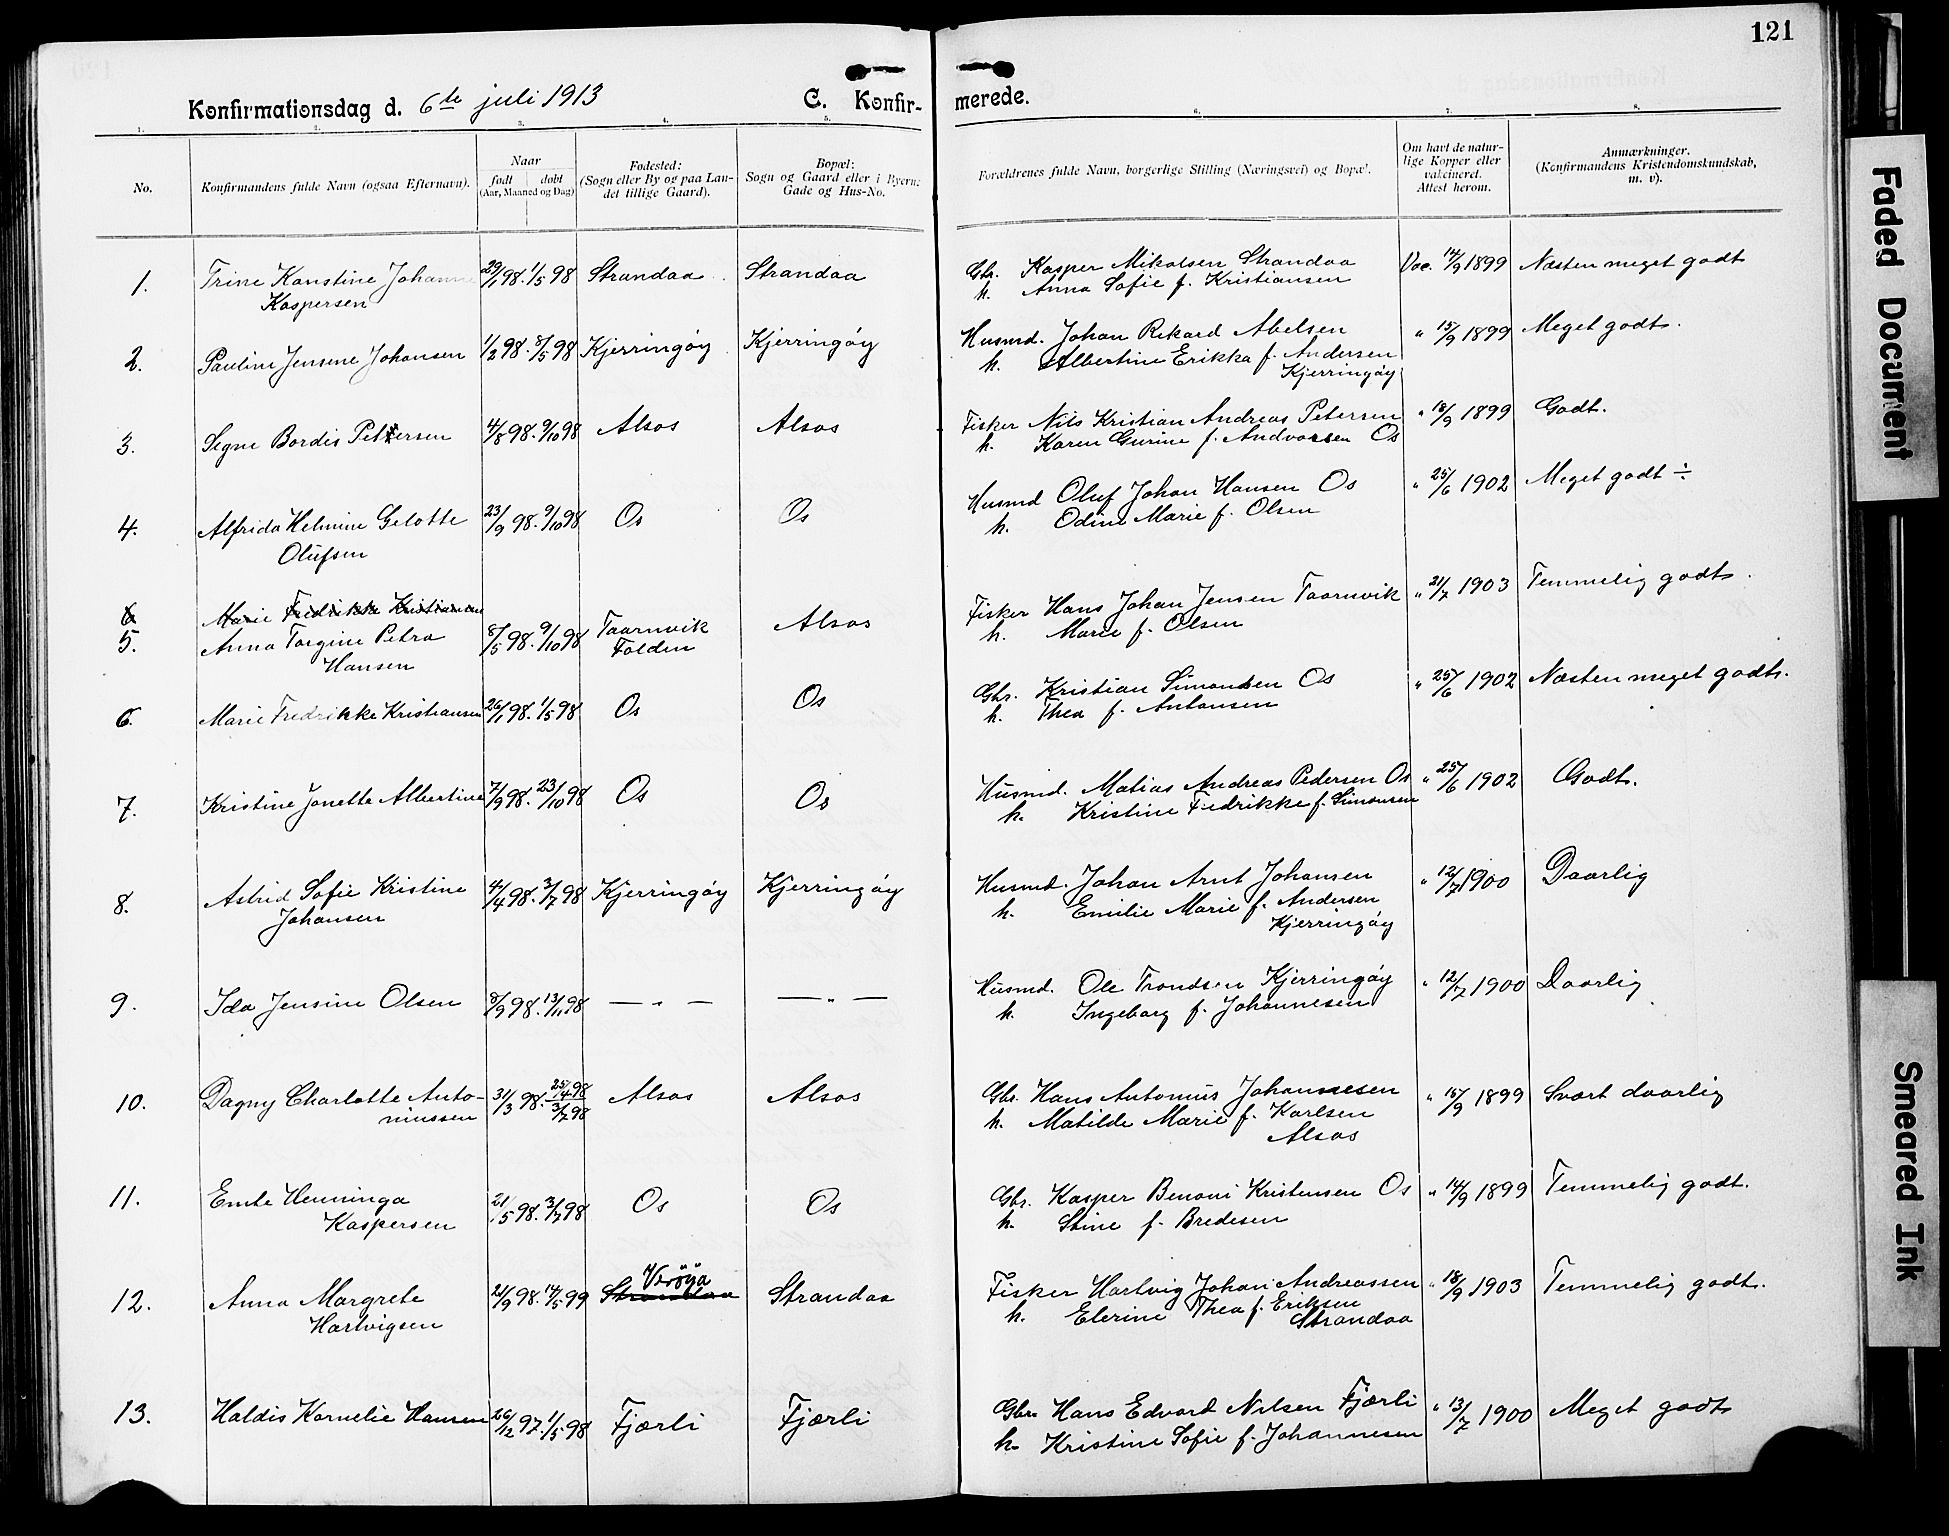 121
Konfirmationsdag d. 6te juli 1913 C. Konfir- merede.
1. 2. 3. 4. 5. 6. 7. 8.
No.
Konfirmandens fulde Navn (ogsaa Efternavn).
Naar
født døbt
(Aar, Maaned og Dag)
Fødested:
(Sogn eller By og paa Lan-
det tillige Gaard).
Bopæl:
Sogn og Gaard eller i Byern:
Gade og Hus-No.
Forældrenes fulde Navn, borgerlige Stilling (Næringsvei) og Bopæl.
Om havt de natur-
lige Kopper eller
vakcineret.
Attest herom.
Anmærkninger.
(Konfirmandens Kristendomskundskab,
m. v).
1. Trine Konstine Johanne 29/1 98. 1/5 98 Strandaa Strandaa Gbr. Kasper Mikalsen Strandaa Vac. 14/9 1899 Næsten meget godt
Kaspersen h. Anna Sofie f. Kristiansen
2. Pauline Jensine Johansen 1/2 98. 8/5 98 Kjerringöy Kjerringöy Husmd. Johan Rikard Abelsen " 15/9 1899 Meget godt.
h. Albertine Erikka f. Andersen
Kjerringöy
3. Signe Bordis Pettersen 4/8 98. 9/10 98 Alsos Alsos Fisker Nils Kristian Andreas Petersen " 18/9 1899 Godt.
h. Karen Gurine f. Andvorsen Os
4. Alfrida Helmine Gelotte 23/9 98. 9/10 98 Os Os Husmd Oluf Johan Hansen Os " 25/6 1902 Meget godt ÷
Olufsen h. Odine Marie f. Olsen
6 Marie Fredrikke Kristiansen
5. Anna Torgine Petra 8/5 98. 9/10 98 Taarnvik Alsos Fisker Hans Johan Jensen Taarnvik " 21/7 1903 Temmelig godt.
Hansen Folden h. Marie f. Olsen
6. Marie Fredrikke Kristiansen 26/1 98. 1/5 98 Os Os Gbr. Kristian Simonsen Os " 25/6 1902 Næsten meget godt.
h. Thea f. Antonsen
7. Kristine Jonette Albertine 7/9 98. 23/10 98 Os Os Husmd. Matias Andreas Pedersen Os " 25/6 1902 Godt.
h. Kristine Fedrikke f. Simonsen
8. Astrid Sofie Kristine 4/4 98. 3/7 98 Kjerringöy Kjerringöy Husmd. Johan Arnt Johansen " 12/7 1900 Daarlig
Johansen h. Emilie Marie f. Andersen
Kjerringöy
9. Ida Jensine Olsen 8/9 98. 13/11 98 — " — — " — Husmd. Ole Trondsen Kjerringöy " 12/7 1900 Daarlig
h. Ingeborg f. Johannesen
10. Dagny Charlotte Anto- 31/3 98. 25/4 98 Alsos Alsos Gbr. Hans Antonius Johannesen " 15/9 1899 Svært daarlig
niussen 3/7 98 h. Matilde Marie f. Karlsen
Alsos
11. Emte Henninga 21/5 98. 3/7 98 Os Os Gbr. Kasper Benoni Kristensen Os " 14/9 1899 Temmelig godt.
Kaspersen h. Stine f. Bredesen
12. Anna Margrete 21/9 98. 14/5 99 Strandaa Veröya Strandaa Fisker Hartvig Johan Andreassen " 18/9 1903 Temmelig godt.
Hartvigsen h. Elerine Thea f. Eriksen
Strandaa
13. Haldis Kornelie Hansen 26/12 97. 1/5 98 Fjærli Fjærli Gbr. Hans Edvard Nilsen Fjærli " 13/7 1900 Meget godt
h. Kristine Sofie f. Johannesen
Faded Document
Smeared Ink